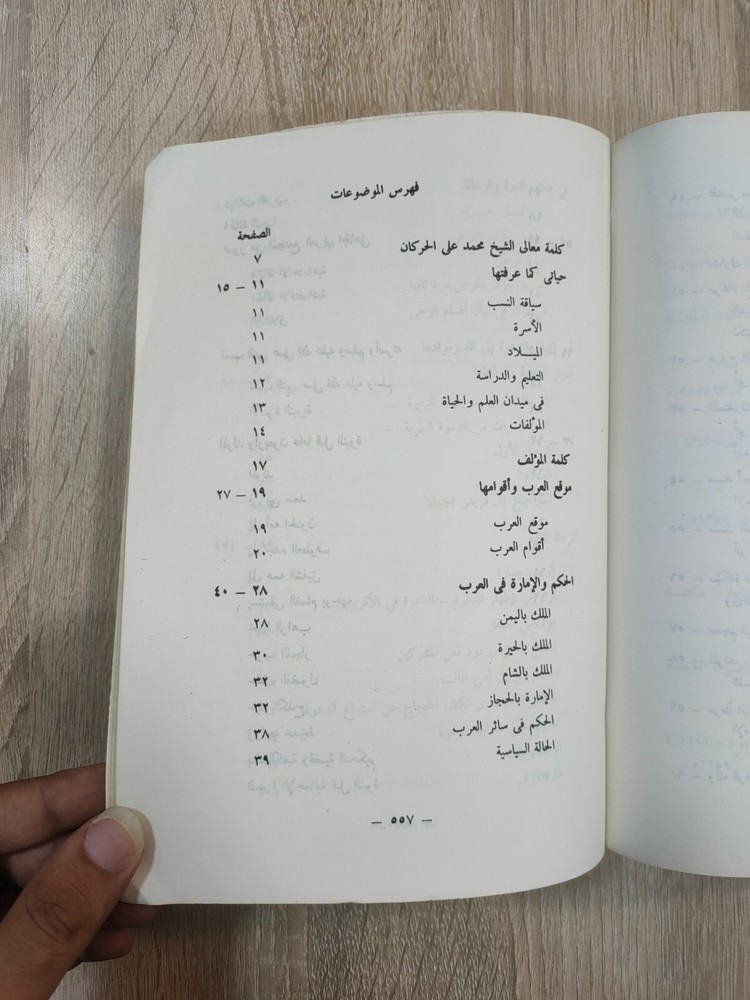 فهرس الموضوعات
الصفحة
كلمة معالى الشيخ محمد على الحركان ٧
حياتى كما عرفتها ١١ – ١٥
سياقة النسب ١١
الأسرة ١١
الميـــلاد ١١
التعليم والدراسة ١٢
فى ميدان العلم والحياة ١٣
المؤلفات ١٤
كلمة المؤلف ١٧
موقع العرب وأقوامها ١٩ – ٢٧
موقع العرب ١٩
أقوام العرب ٢٠
الحكم والإمارة فى العرب ٢٨ – ٤٠
الملك باليمن ٢٨
الملك بالحيرة ٣٠
الملك بالشام ٣٢
الإمارة بالحجاز ٣٢
الحكم فى سائر العرب ٣٨
الحالة السياسية ٣٩
– ٥٥٧ –